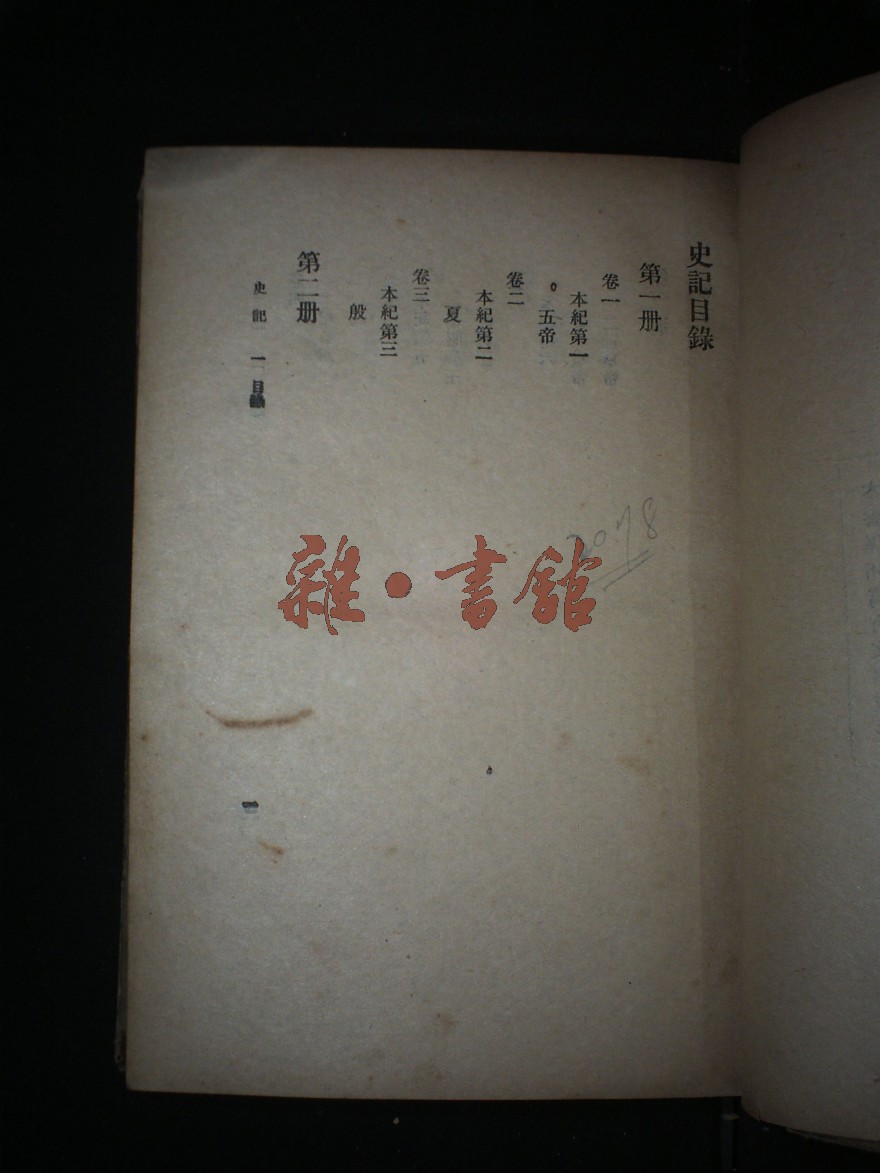 史記目錄
第一册
卷一
本紀第一
五帝
卷二
本紀第二
夏
卷三
本紀第三
殷
第二册
史記 一 目錄
一
2078
雜·書館